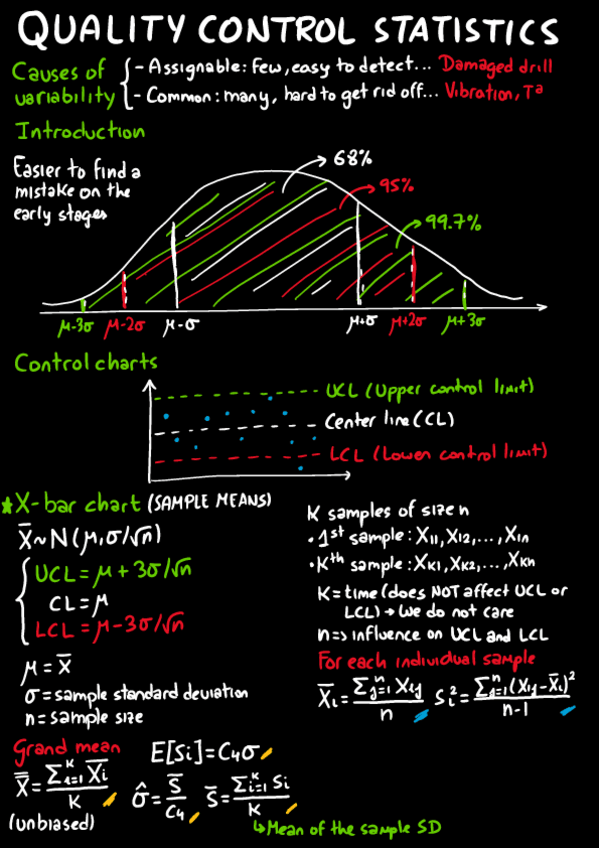 QUALITY CONTROL STATISTICS
Causes of variability
- Assignable: Few, easy to detect... Damaged drill
- Common: many, hard to get rid off... Vibration, Tª
Introduction
Easier to find a
mistake on the
early stages
68%
95%
99.7%
μ-3σ μ-2σ μ-σ μ+σ μ+2σ μ+3σ
Control charts
UCL (Upper control limit)
Center line (CL)
LCL (Lower control limit)
*X-bar chart (SAMPLE MEANS)
X̄~N(μ,σ/√n)
UCL = μ + 3σ/√n
CL = μ
LCL = μ - 3σ/√n
μ = X̄
σ = sample standard deviation
n = sample size
K samples of size n
• 1st sample: X11, X12, ..., X1n
• Kth sample: XK1, XK2, ..., XKn
K = time (does NOT affect UCL or
LCL) → We do not care
n => influence on UCL and LCL
For each individual sample
X̄i = Σⁿj=1 Xij / n  Si² = Σⁿj=1 (Xij - X̄i)² / n-1
Grand mean
X̿ = Σᴷi=1 X̄i / K
(unbiased)
E[Si] = C4σ
σ̂ = S̄ / C4  S̄ = Σᴷi=1 Si / K
↳ Mean of the sample SD